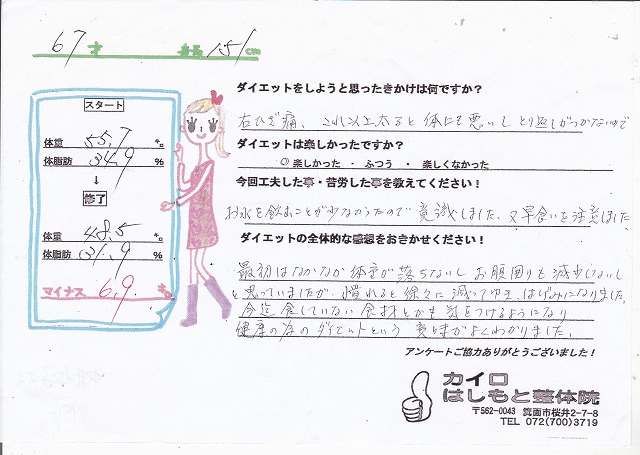 67才 身長151cm
スタート
体重 55.7 kg
体脂肪 34.9 %
↓
修了
体重 48.5 kg
体脂肪 31.9 %
マイナス 6.9 kg
ダイエットをしようと思ったきかけは何ですか？
右ひざ痛、これ以上太ると体にも悪いしとり返しがつかないので
ダイエットは楽しかったですか？
◎ 楽しかった ・ ふつう ・ 楽しくなかった
今回工夫した事・苦労した事を教えてください！
お水を飲むことが少なかったので意識しました、又早食いを注意しました、
ダイエットの全体的な感想をおきかせください！
最初はなかなか体重が落ちないしお腹周りも減少しないし
と思っていましたが、慣れると徐々に減ってゆき、はげみになりました。
今迄食していない食材とかも気をつけるようになり
健康の為のダイエットという意味がよくわかりました。
アンケートご協力ありがとうございました！
カイロ
はしもと整体院
〒562-0043 箕面市桜井2-7-8
TEL 072(700)3719